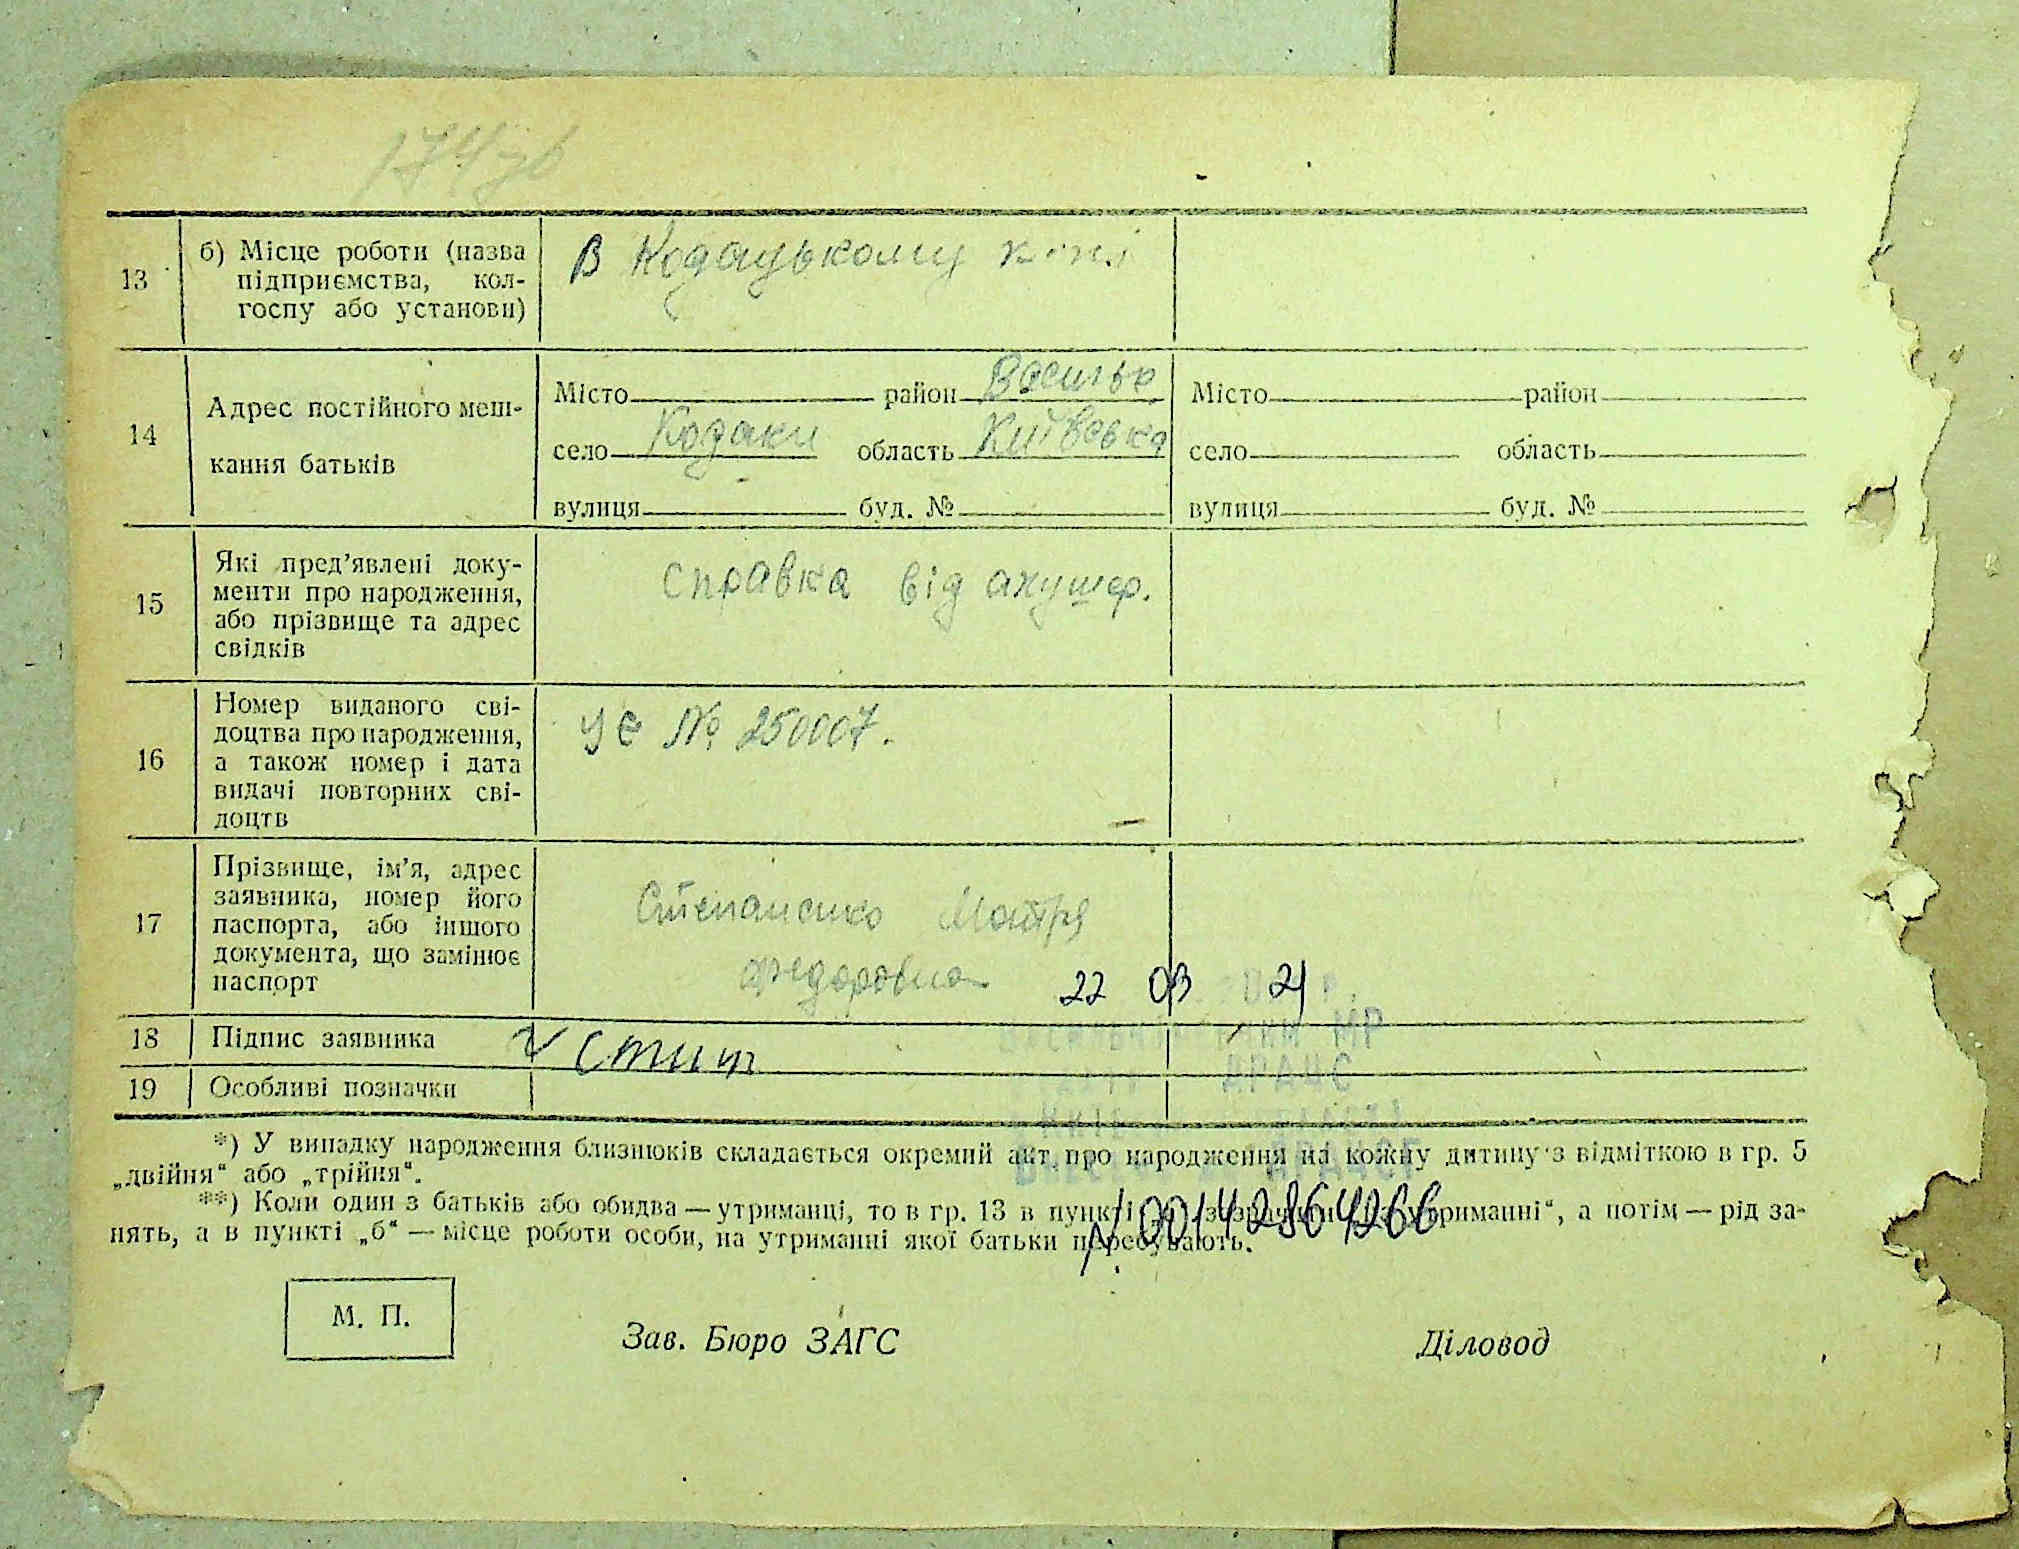 174 зв
13
б) Місце роботи (назва
підприємства, кол-
госпу або установи)
В Кодацькому
14
Адрес постійного меш-
кання батьків
Місто район Васильк
село Кодаки область Київська
вулиця буд. №
Місто район
село область
вулиця буд. №
15
Які пред’явлені доку-
менти про народження,
або прізвище та адрес
свідків
справка від акушер.
16
Номер виданого сві-
доцтва про народження,
а також номер і дата
видачі повторних сві-
доцтв
УЄ № 250007.
17
Прізвище, ім’я, адрес
заявника, номер його
паспорта, або іншого
документа, що замінює
паспорт
Степаненко Мотря
Федоровна
22 03 21
МР
18
Підпис заявника
19
Особливі позначки
ДРАЦС
*) У випадку народження близнюків складається окремий акт про народження на кожну дитину з відміткою в гр. 5
„двійня“ або „трійня“.
**) Коли один з батьків або обидва — утриманці, то в гр. 13 в пункті утриманні“, а потім — рід за-
нять, а в пункті „б“ — місце роботи особи, на утриманні якої батьки перебувають.
N 00142864266
М. П.
Зав. Бюро ЗАГС
Діловод